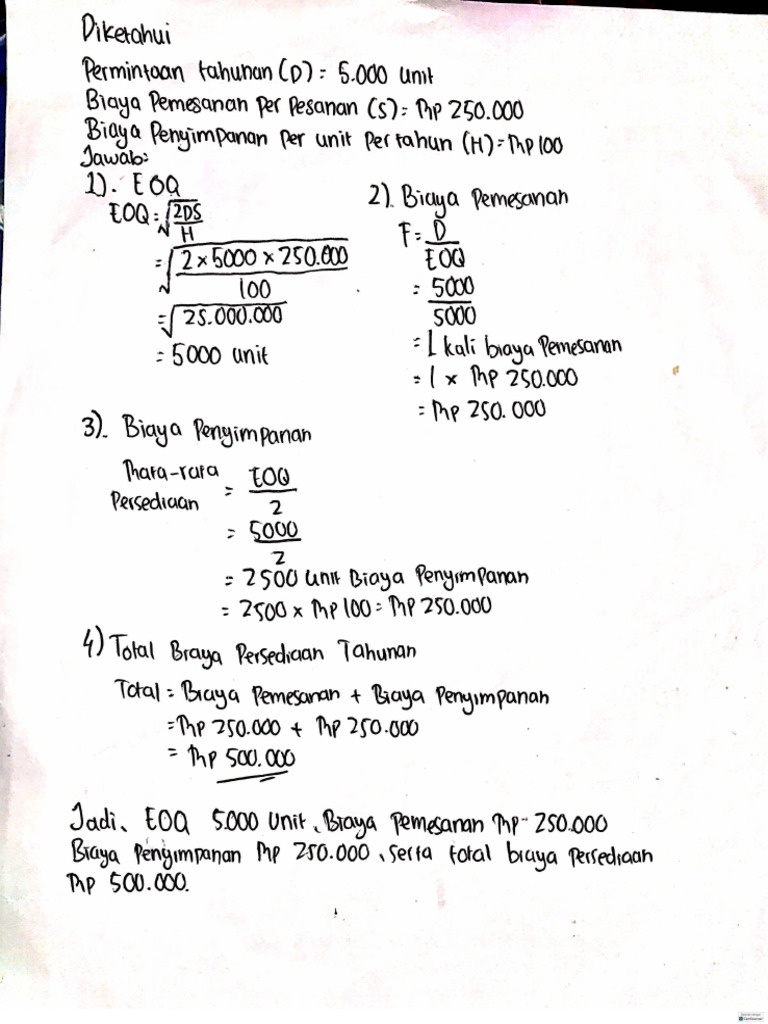 Diketahui
Permintaan tahunan (D) = 5.000 unit
Biaya Pemesanan Per Pesanan (S) = Rp 250.000
Biaya Penyimpanan Per unit Per tahun (H) = Rp 100
Jawab:
1). EOQ
EOQ = √2DS
H
= √2 × 5000 × 250.000
100
= √25.000.000
= 5000 unit
2). Biaya Pemesanan
F = D
EOQ
= 5000
5000
= 1 kali biaya Pemesanan
= 1 × Rp 250.000
= Rp 250.000
3). Biaya Penyimpanan
Rata-rata
Persediaan = EOQ
2
= 5000
2
= 2500 unit Biaya Penyimpanan
= 2500 × Rp 100 = Rp 250.000
4) Total Biaya Persediaan Tahunan
Total = Biaya Pemesanan + Biaya Penyimpanan
= Rp 250.000 + Rp 250.000
= Rp 500.000
Jadi, EOQ 5.000 Unit, Biaya Pemesanan Rp 250.000
Biaya Penyimpanan Rp 250.000, serta total biaya Persediaan
Rp 500.000.